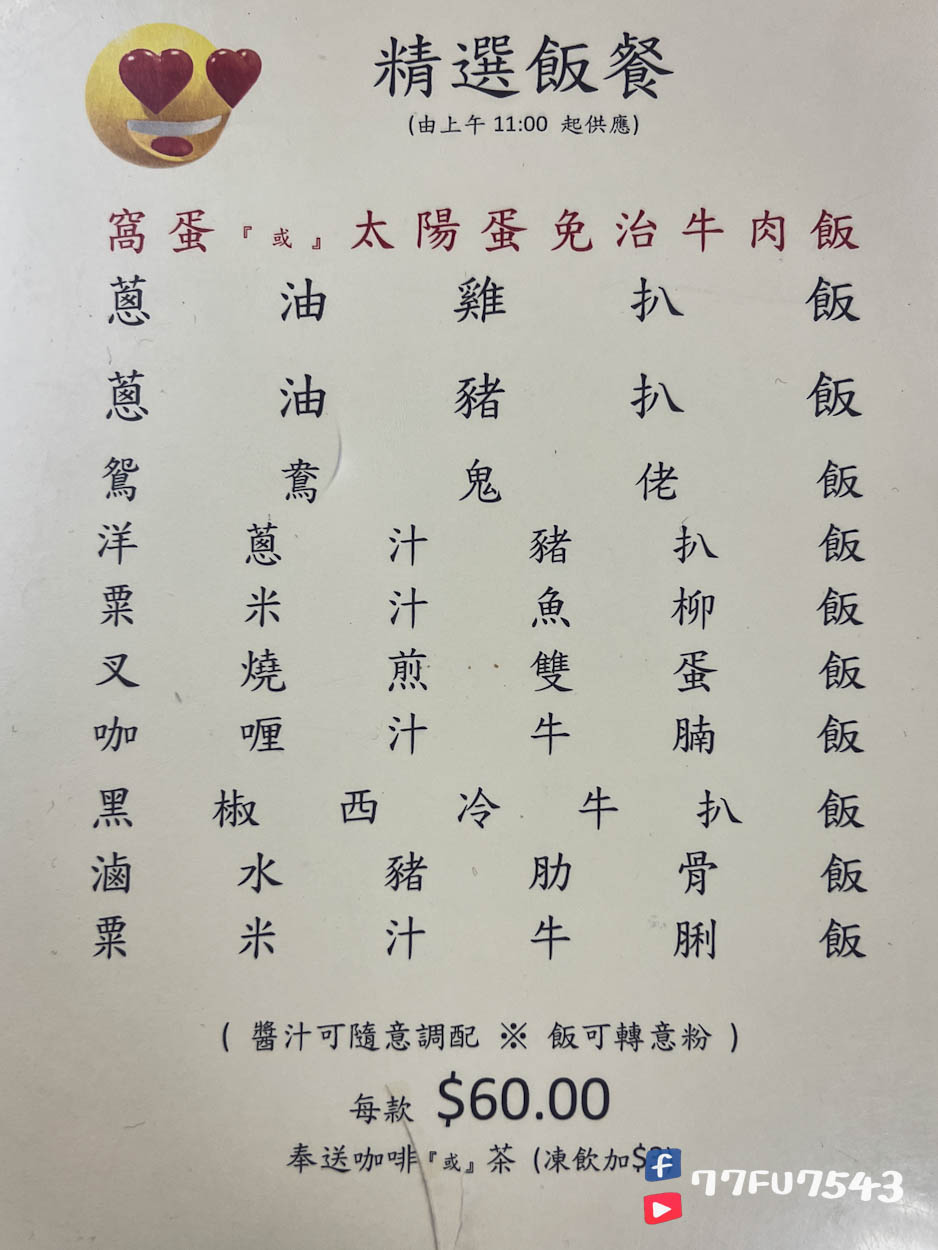 精選飯餐
(由上午 11:00 起供應)
窩蛋『或』太陽蛋免治牛肉飯
蔥油雞扒飯
蔥油豬扒飯
鴛鴦鬼佬飯
洋蔥汁豬扒飯
粟米汁魚柳飯
叉燒煎雙蛋飯
咖喱汁牛腩飯
黑椒西冷牛扒飯
滷水豬肋骨飯
粟米汁牛脷飯
( 醬汁可隨意調配 ※ 飯可轉意粉 )
每款 $60.00
奉送咖啡『或』茶 (凍飲加$
77FU7543